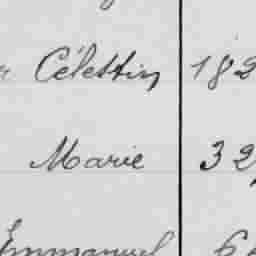 Célestin 182
Marie 32
Emmanuel 6